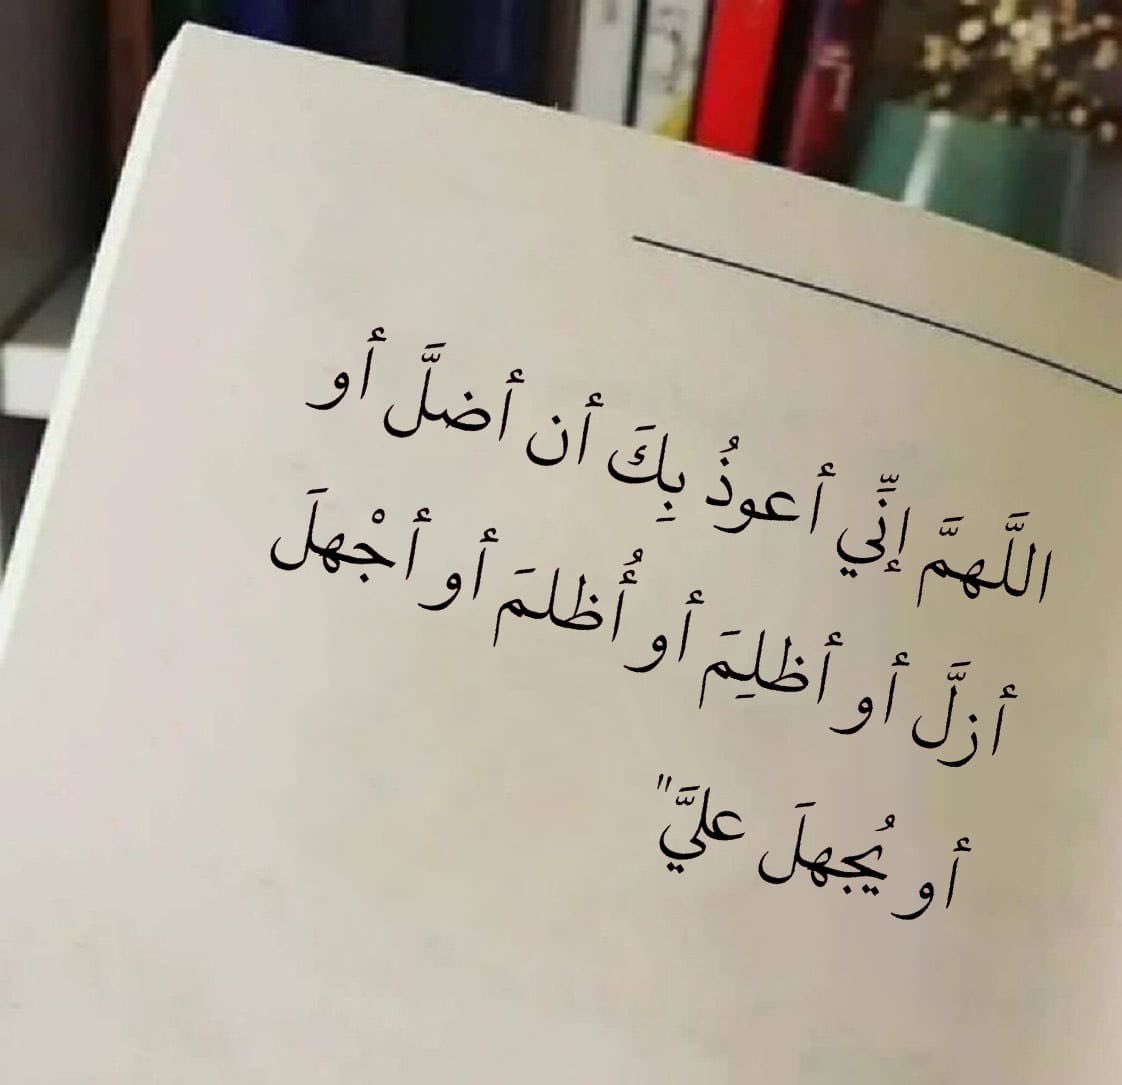 اللَّهمَّ إنِّي أعوذُ بِكَ أن أضلَّ أو
أزلَّ أو أظلِمَ أو أُظلمَ أو أجْهلَ
أو يُجهلَ عليَّ"